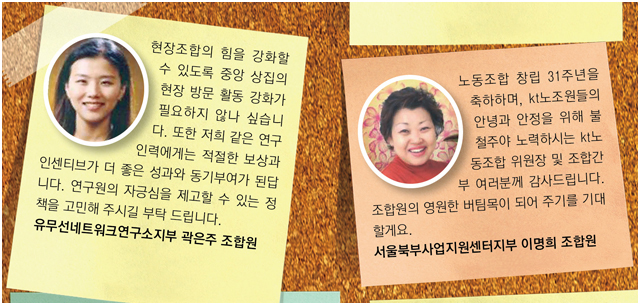 현장조합의 힘을 강화할
수 있도록 중앙 상집의
현장 방문 활동 강화가
필요하지 않나 싶습니
다. 또한 저희 같은 연구
인력에게는 적절한 보상과
인센티브가 더 좋은 성과와 동기부여가 된답
니다. 연구원의 자긍심을 제고할 수 있는 정
책을 고민해 주시길 부탁 드립니다.
유무선네트워크연구소지부 곽은주 조합원
노동조합 창립 31주년을
축하하며, kt노조원들의
안녕과 안정을 위해 불
철주야 노력하시는 kt노
동조합 위원장 및 조합간
부 여러분께 감사드립니다.
조합원의 영원한 버팀목이 되어 주기를 기대
할게요.
서울북부사업지원센터지부 이명희 조합원